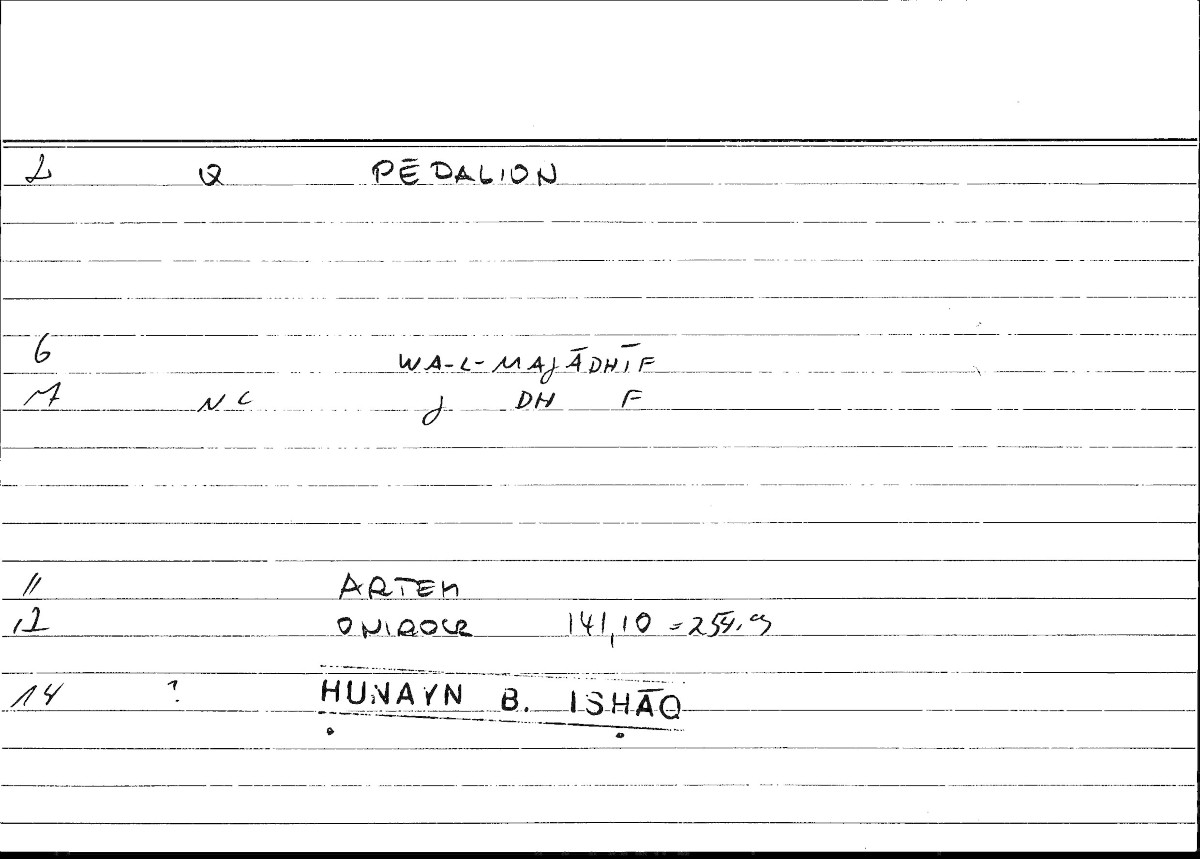 2 Q PĒDALION
6 WA-L-MAJĀDHĪF
7 NC J DH F
11 ARTEM
12 ONIROCR 141,10 = 254.9
14 ? ḤUNAYN B. ISḤĀQ